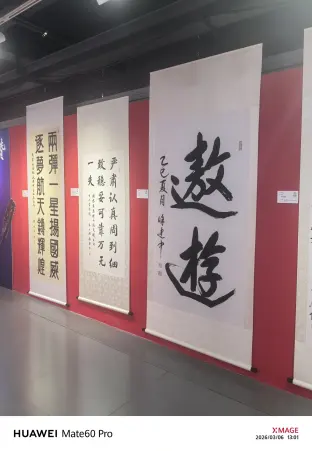 兩彈一星揚國威
逐夢航天鑄輝煌
严肃认真周到细
致稳妥可靠万无
一失
遨遊
乙巳夏月
HUAWEI Mate60 Pro
XMAGE
2026/03/06 13:01